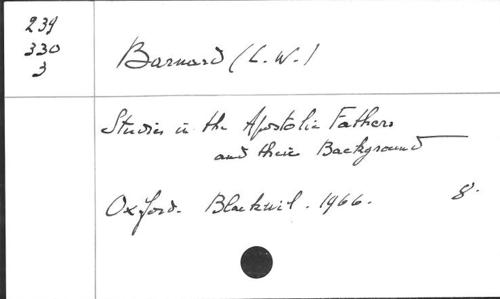 239
330
3
Barnard (L. W.)
Studies in the Apostolic Fathers
and their Background
Oxford. Blackwell. 1966. 8°.